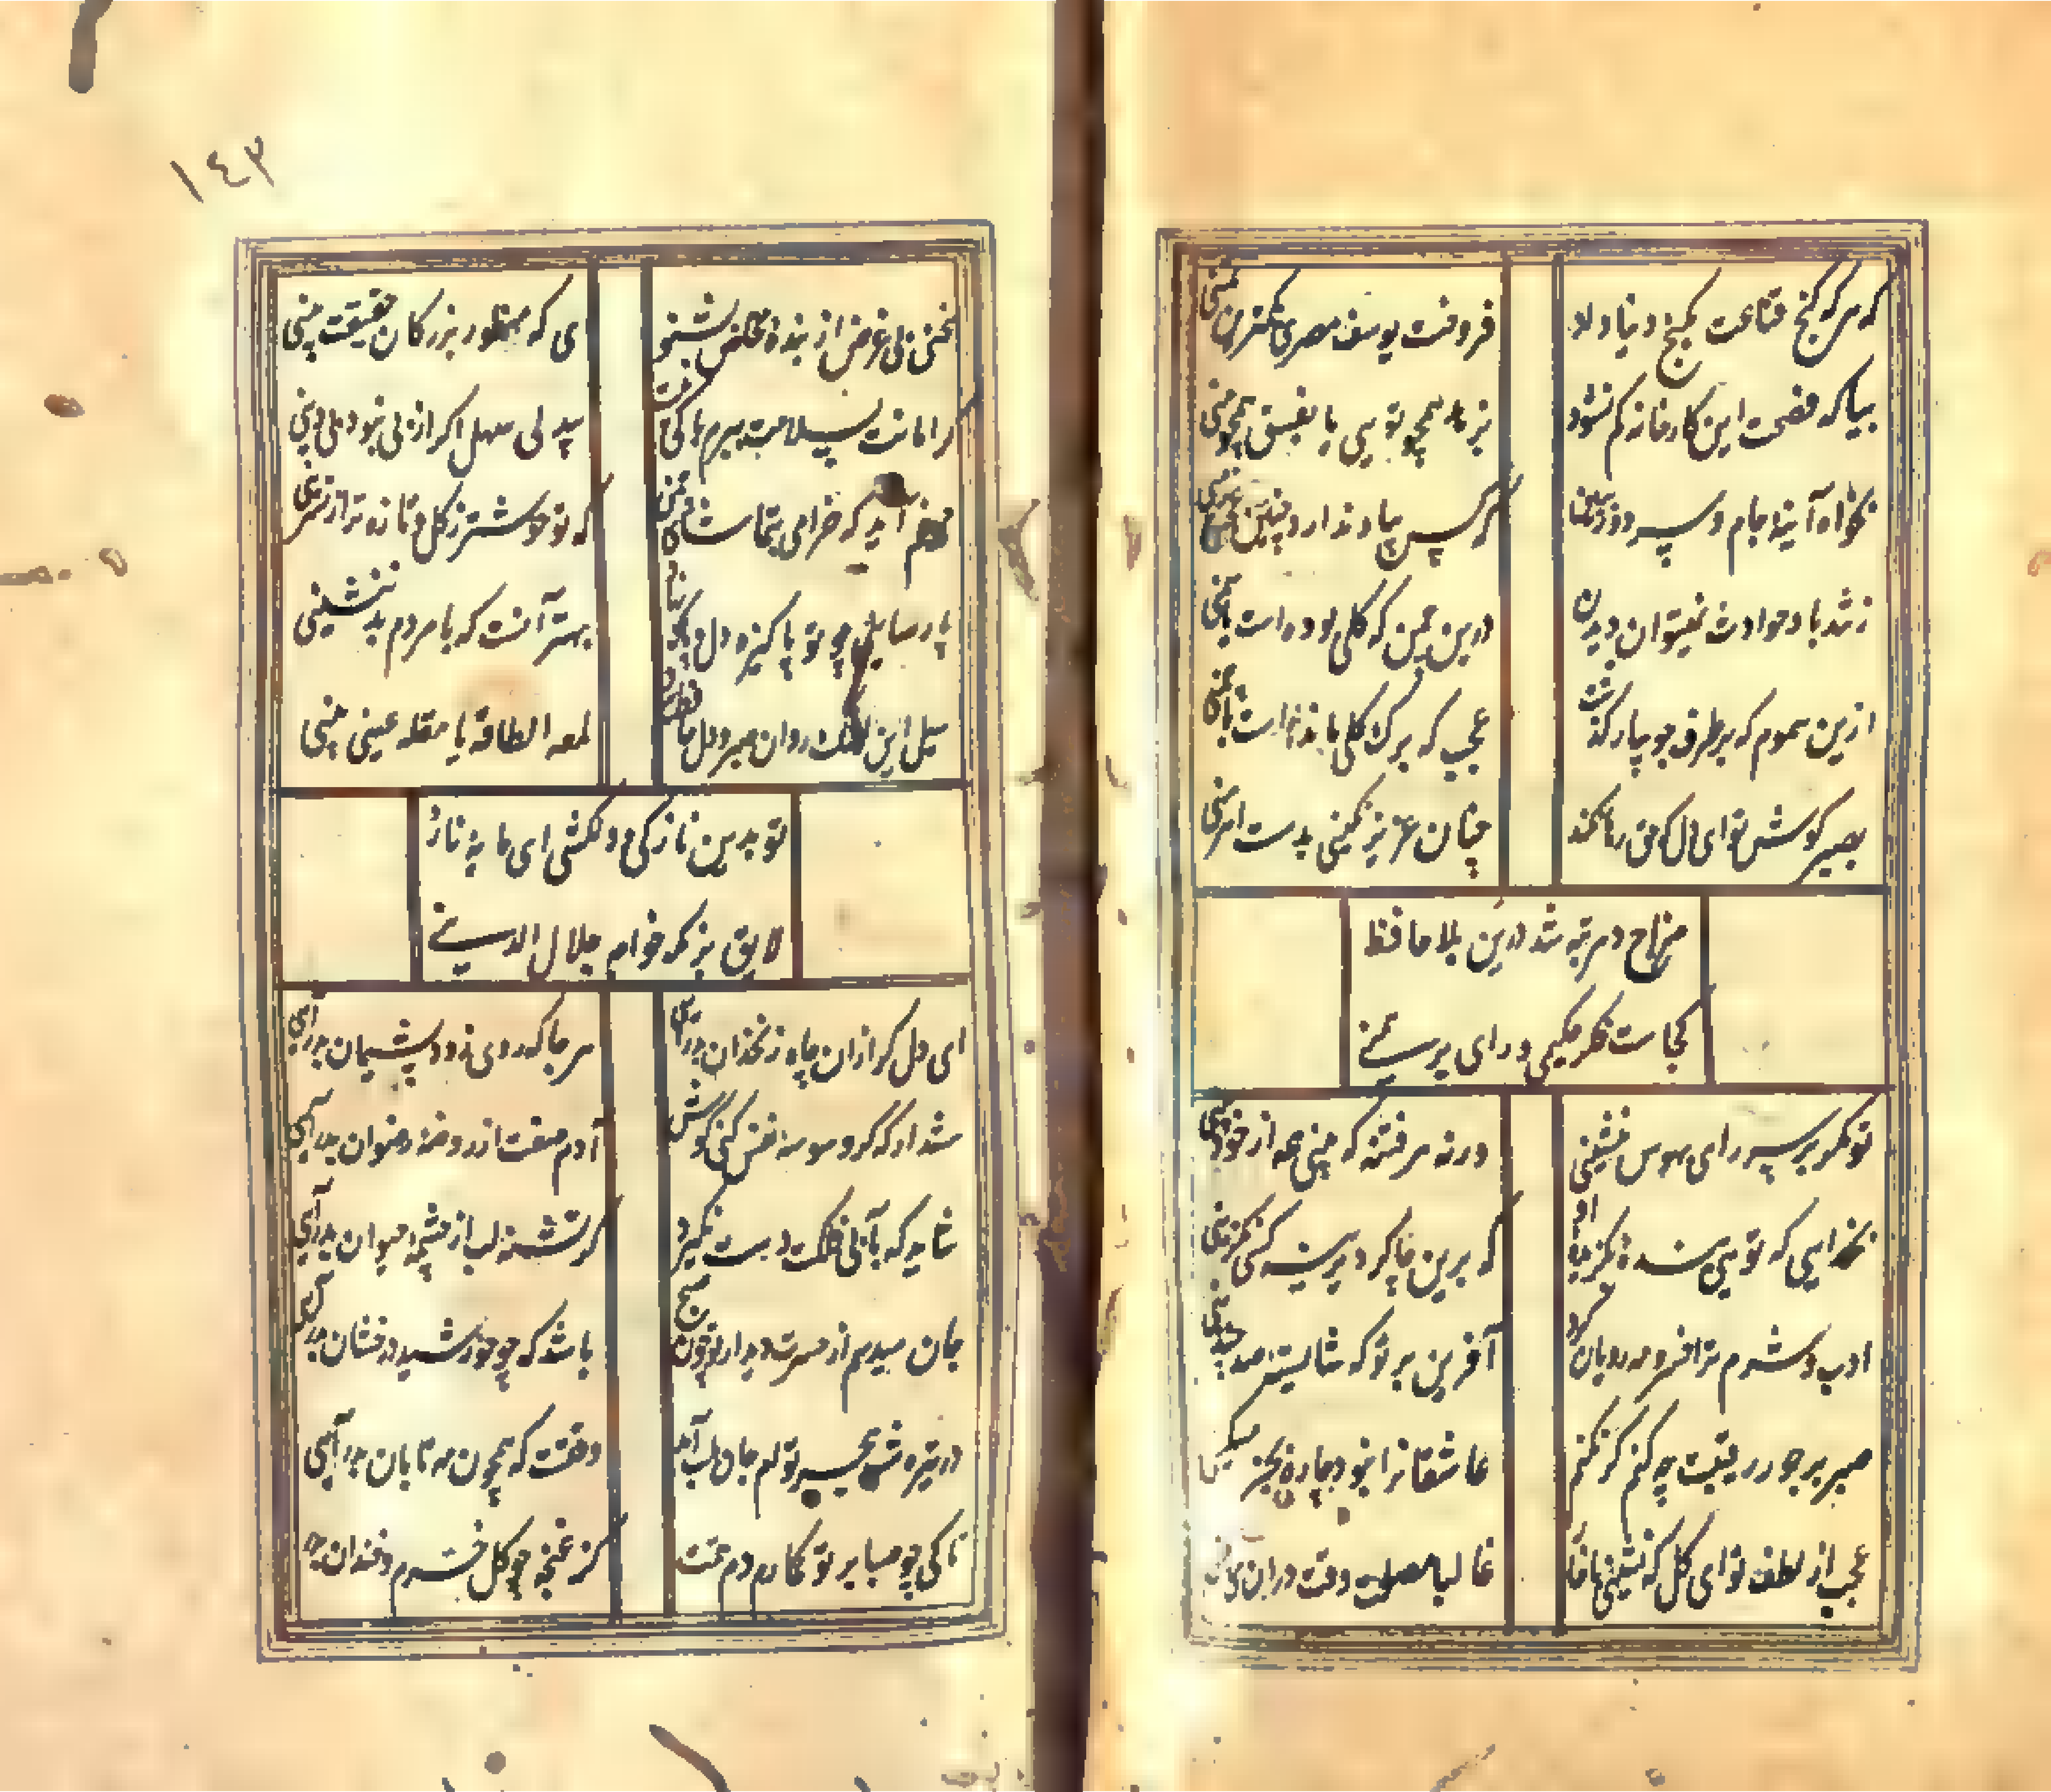 که هر که کنج قناعت بکنج دنیا داد
فروخت یوسف مصری بکمترین ثمنی
بیا که فسحت این کارخانه کم نشود
بزهد همچو تویی یا بفسق همچو منی
که کس بیاد ندارد چنین
ز تندباد حوادث نمیتوان دیدن
درین چمن که گلی بوده است یا سمنی
ازین سموم که بر طرف جویبار گذشت
عجب که برگ گلی ماند
بصبر کوش تو ای دل که حق رها نکند
چنان عزیز نگینی بدست اهرمنی
مزاج دهر تبه شد درین بلا حافظ
کجاست فکر حکیمی و رای برهمنی
تو مگر بر سر
ورنه هر فتنه که بینی همه از خود بینی
بخدایی که تویی بنده بگزیده او
که برین چاکر دیرینه کسی نگزینی
ادب و شرم ترا خسرو مه رویان کرد
آفرین بر تو که شایسته صد چندینی
صبر بر جور رقیبت چه کنم گر نکنم
عاشقانرا نبود چاره بجز مسکینی
عجب از لطف تو ای گل که نشینی با خار
غالبا مصلحت وقت در آن می بینی
سخنی بی غرض از بنده مخلص بشنو
ای که منظور بزرگان حقیقت بینی
گر امانت بسلامت ببرم باکی نیست
بیدلی سهل اگر از پی نبود بی دینی
که تو خوشتر ز گل و تازه تر از نسرینی
پارسایی چو تو پاکیزه دل پاک نهاد
بهتر آنست که با مردم بد ننشینی
سیل این اشک روان صبر و دل حافظ برد
تو بدین نازکی و دلکشی ای مایه ناز
لایق بزمگه خواجه جلال الدینی
ای دل گر ازان چاه زنخدان بدرآیی
هر جا که روی زود پشیمان بدرآیی
هشدار که گر وسوسه نفس کنی گوش
آدم صفت از روضه رضوان بدرآیی
شاید که بآبی فلکت دست نگیرد
گر تشنه لب از چشمه حیوان بدرآیی
جان میدهم از حسرت دیدار تو چون صبح
باشد که چو خورشید درخشان بدرآیی
در تیره شب هجر تو ام جان بلب آمد
وقتست که همچون مه تابان بدرآیی
تا کی چو صبا بر تو گمارم دم همت
کز غنچه چو گل خرم و خندان بدر
١٤٣